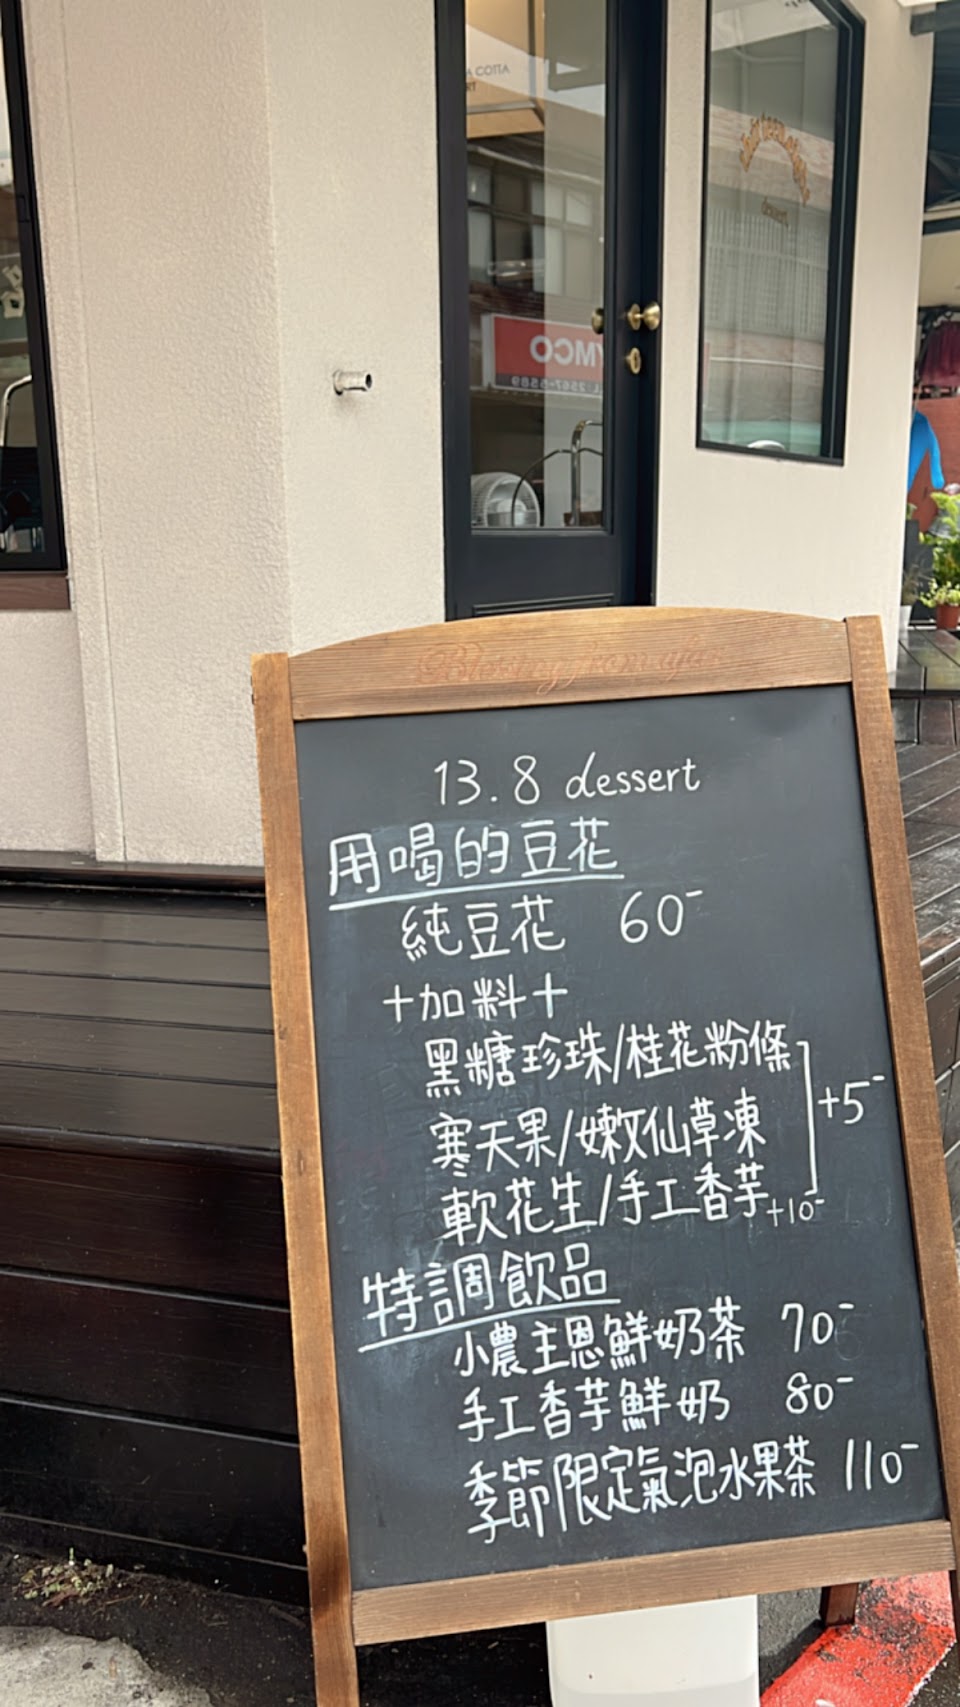 A COTTA
YMCO
2567-5589
Blessing from
13.8 dessert
用喝的豆花
純豆花 60-
+加料+
黑糖珍珠/桂花粉條
寒天果/嫩仙草凍
+5-
軟花生/手工香芋+10-
特調飲品
小農主恩鮮奶茶 70-
手工香芋鮮奶 80-
季節限定氣泡水果茶 110-